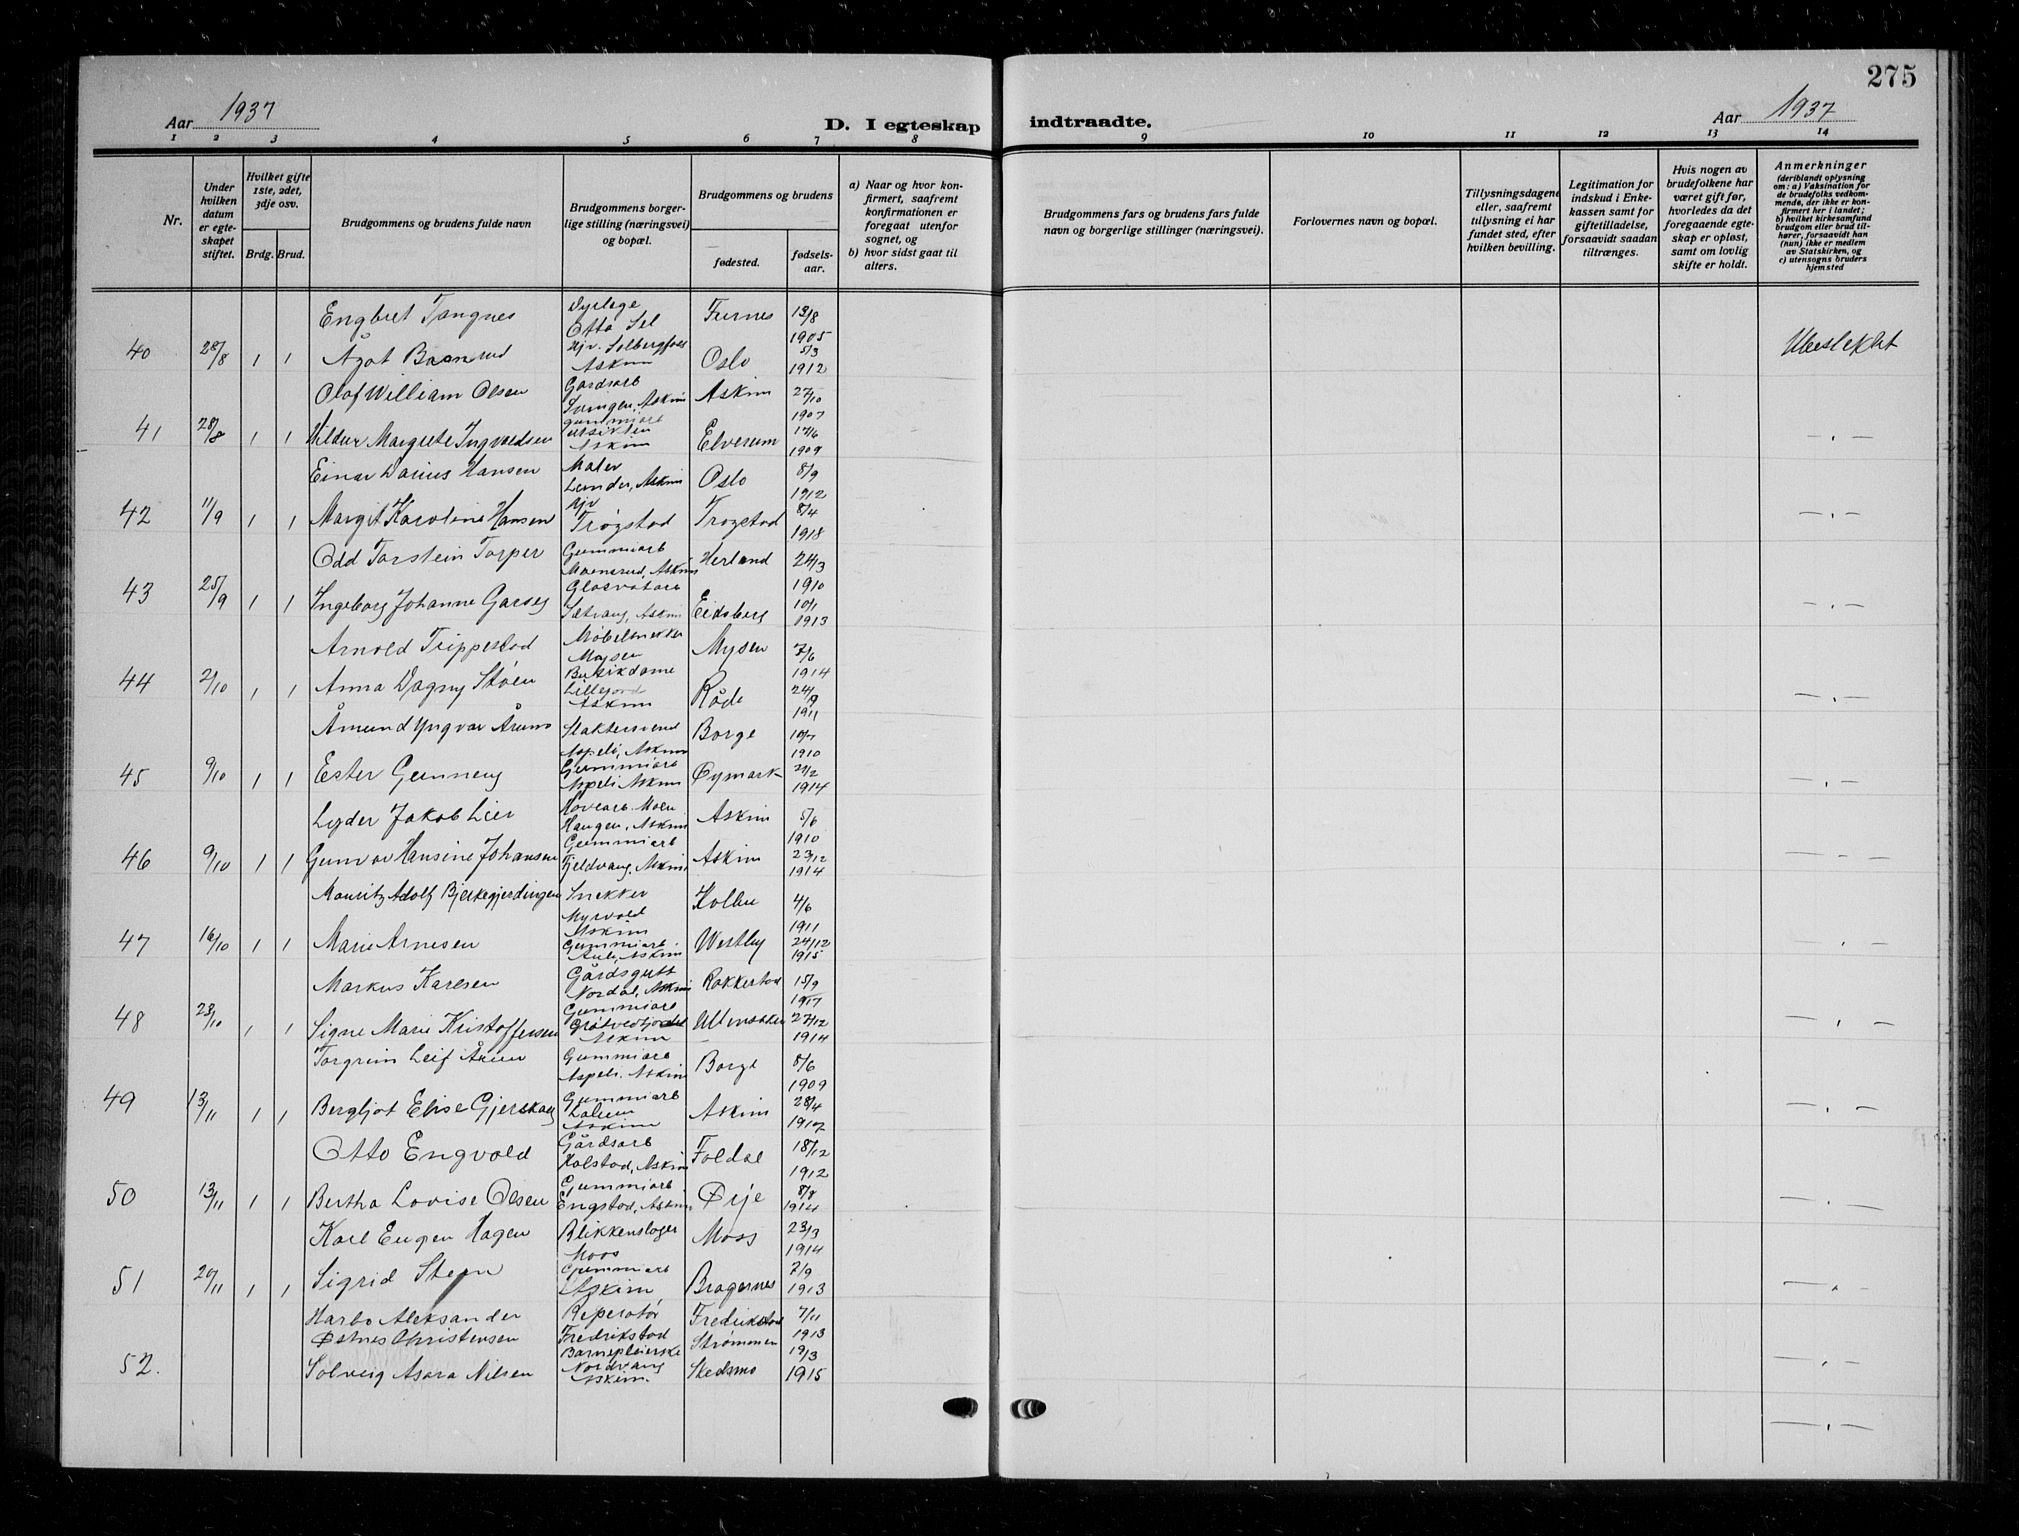 275
Aar 1937
D. I egteskap indtraadte.
Aar 1937
1 2 3 4 5 6 7 8 9 10 11 12 13 14
Nr.
Under hvilken datum er egteskapet stiftet.
Hvilket gifte 1ste, 2det, 3dje osv.
Brdg. Brud.
Brudgommens og brudens fulde navn
Brudgommens borgerlige stilling (næringsvei) og bopæl.
Brudgommens og brudens
fødested.
fødselsaar.
a) Naar og hvor konfirmert, saafremt konfirmationen er foregaat utenfor sognet, og
b) hvor sidst gaat til alters.
Brudgommens fars og brudens fars fulde navn og borgerlige stillinger (næringsvei).
Forlovernes navn og bopæl.
Tillysningsdagene eller, saafremt tillysning ei har fundet sted, efter hvilken bevilling.
Legitimation for indskud i Enkekassen samt for giftetilladelse, forsaavidt saadan tiltrænges.
Hvis nogen av brudefolkene har været gift før, hvorledes da det foregaaende egteskap er opløst, samt om lovlig skifte er holdt.
Anmerkninger
(deriblandt oplysning om: a) Vaksination for de brudefolks vedkommende, der ikke er konfirmert her i landet; b) hvilket kirkesamfund brudgom eller brud tilhører, forsaavidt han (hun) ikke er medlem av Statskirken, og c) utensogns bruders hjemsted
Engbret Tangnes Dyrlege Otta Sel Furnes 13/8 1905
40 28/8 1 1 Ågot Baanrud Hjv. Solbergfoss Askim Oslo 5/3 1912 Ubeslektet
Olaf William Olsen Gårdsarb Svingen, Askim Askim 27/10 1907
41 28/8 1 1 Hildur Margrete Ingvaldsen gummiarb utsikten Askim Elverum 17/6 1909 — " —
Einar Darius Hansen Maler Lunder, Askim Oslo 8/9 1912
42 11/9 1 1 Margit Karoline Hansen Hjv Trøgstad Trøgstad 8/4 1918 — " —
Odd Torstein Torper Gummiarb Moensrud, Askim Herland 24/3 1910
43 25/9 1 1 Ingeborg Johanne Garseg Glasvatarb Sætrang, Askim Eidsberg 10/1 1913 — " —
Arnold Trippestad Møbelsnekker Mysen Mysen 7/6 1914
44 2/10 1 1 Anna Dagny Støen Butikdame Lillejord Askim Råde 24/9 1911 — " —
Åmund Yngvar Årum Slaktersvend Aspeli, Askim Borge 10/7 1910
45 9/10 1 1 Ester Gunneng Gummiarb Aspeli Askim Øymark 21/2 1914 — " —
Lyder Jakob Lier Hovearb. Moen Haugen, Askim Askim 5/6 1910
46 9/10 1 1 Gunvor Hansine Johansen Gummiarb Fjeldvang, Askim Askim 23/12 1914 — " —
Mauritz Adolf Bjerkegjerdingen Snekker Myrvold Askim Kolbu 4/6 1911
47 16/10 1 1 Marie Arnesen Gummiarb. Auli, Askim Westby 24/12 1915 — " —
Markus Karlsen Gårdsgutt Nordal, Askim Rakkestad 15/9 1917
48 23/10 1 1 Signe Marie Kristoffersen Gummiarb Grøtvedtjordet Askim Ullensaker 27/12 1914 — " —
Torgrim Leif Årum Gummiarb Aspeli. Askim Borge 8/6 1909
49 13/11 1 1 Bergljot Elise Gjerskaug Gummiarb Askim Askim 28/4 1917 — " —
Otto Engvold Gårdsarb Kolstad, Askim Foldal 18/12 1912
50 13/11 1 1 Bertha Lovise Olsen Gummiarb Engstad, Askim Ørje 8/8 1914 — " —
Karl Eugen Hagen Blikkenslager Moss Moss 23/3 1914
51 20/11 1 1 Sigrid Steen Gummiarb Askim Bragernes 7/9 1913 — " —
Harbo Aleksander Østnes Christensen Reperatør Fredrikstad Fredrikstad 7/11 1913
52. Solveig Asora Nilsen Barnepleierske Nordvang Askim. Strømmen Skedsmo 19/3 1915 — " —
— " —